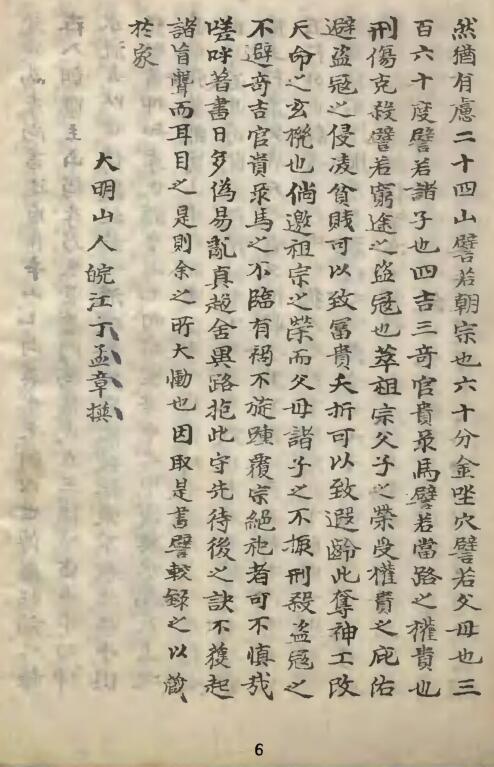 然猶有慮二十四山譬若朝宗也六十分金坐穴譬若父母也三
百六十度譬若諸子也四吉三奇官貴录馬譬若當路之權貴也
刑傷克殺譬若窮途之盜冦也萃祖宗父子之榮受權貴之庇佑
避盜冦之侵凌貧賎可以致冨貴夭折可以致遐齡此奪神工改
天命之玄機也倘邀祖宗之榮而父母諸子之不振刑殺盜冦之
不避奇吉官貴录馬之不臨有禍不旋踵覆宗絕祀者可不慎哉
嗟呼著書日多偽易亂真趍舍異路抱此守先待後之訣不獲起
諸盲聾而耳目之是則余之所大慟也因取是書譬較録之以藏
於家
大明山人皖江丁孟章撰
6